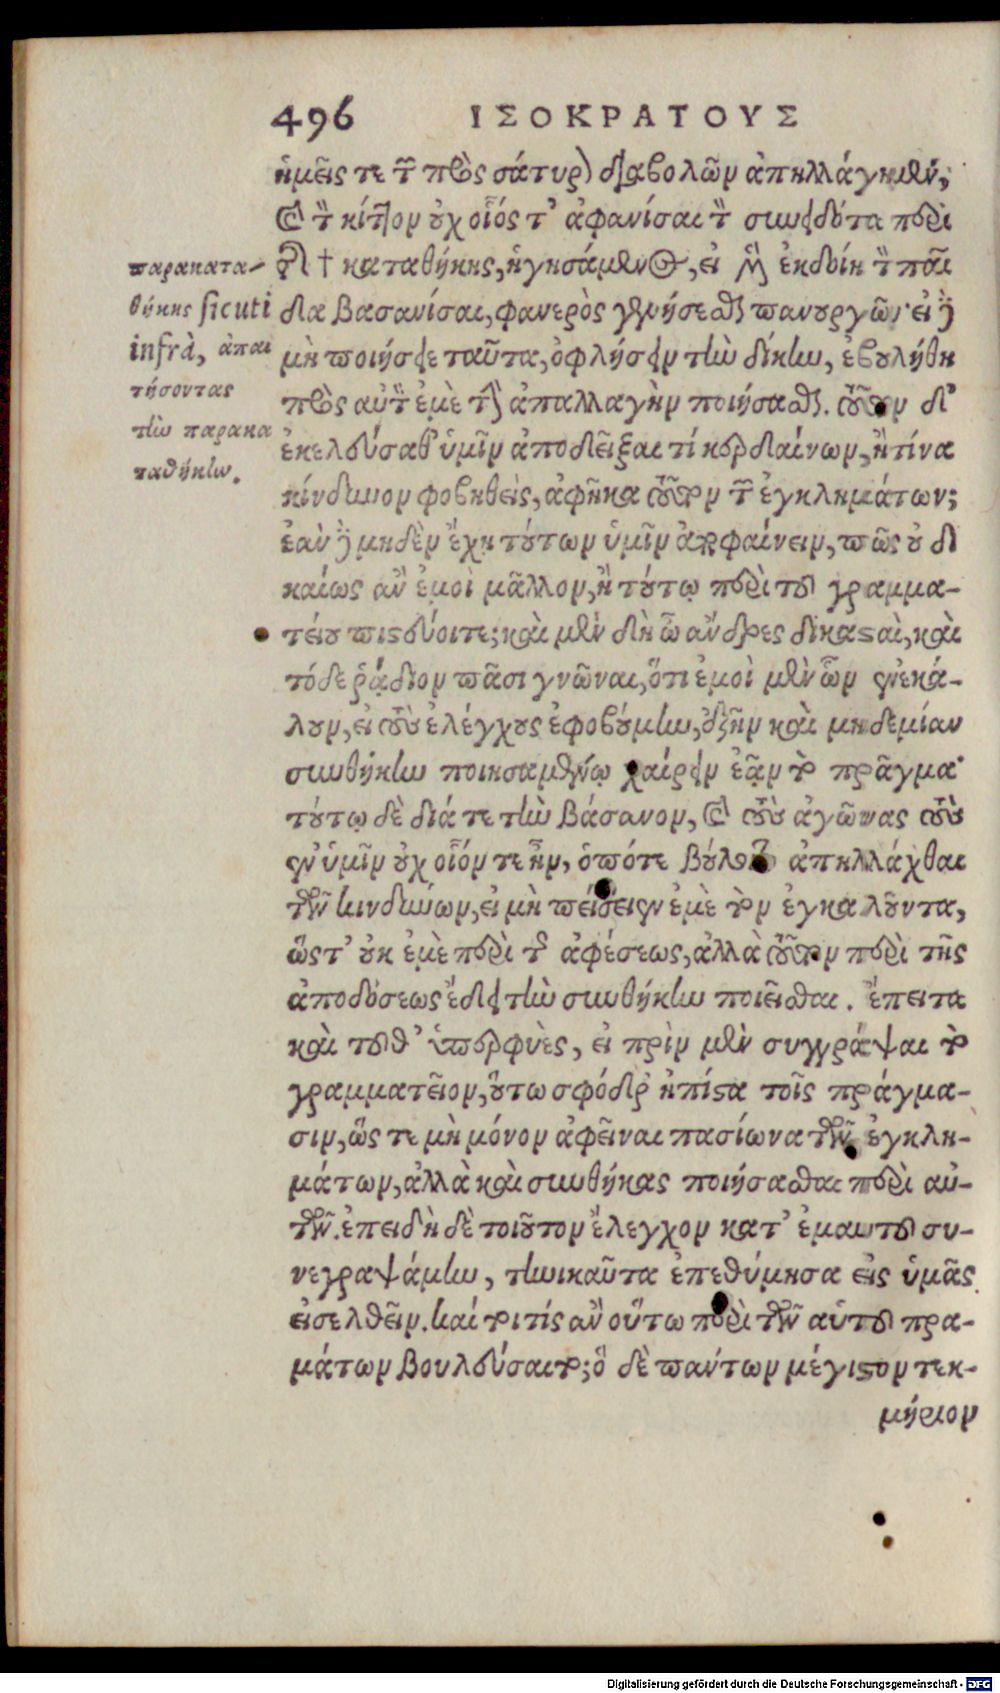 496 ΙΣΟΚΡΑΤΟΥΣ
ἡμεῖς τε τῶν πρὸς σάτυρον διαβολῶν ἀπηλλάγημεν,
καὶ τὸν κίττον οὐχ οἷός τ' ἀφανίσαι τὸν συνειδότα περὶ
παρακατα-
τῆς † καταθήκης, ἡγησάμενος, εἰ μὲν ἐκδοίη τὸν παῖ
θήκης sicuti
δα βασανίσαι, φανερὸς γενήσεσθαι πανουργῶν· εἰ δὲ
infrà, ἀπαι
μὴ ποιήσειε ταῦτα, ὀφλήσειν τὴν δίκην, ἐβουλήθη
τήσοντας
πρὸς αὐτὸν ἐμὲ τὴν ἀπαλλαγὴν ποιήσασθαι. τοῦτον δὲ
τὴν παρακα
ἐκελεύσαθ' ὑμῖν ἀποδεῖξαι τί κερδαίνων, ἢ τίνα
ταθήκην.
κίνδυνον φοβηθεὶς, ἀφῆκα τοῦτον τῶν ἐγκλημάτων;
ἐὰν δὲ μηδὲν ἔχῃ τούτων ὑμῖν ἀποφαίνειν, πῶς οὐ δι
καίως ἂν ἐμοὶ μᾶλλον, ἢ τούτῳ περὶ τοῦ γραμμα-
τείου πιστεύοιτε; καὶ μὲν δὴ ὦ ἄνδρες δικασταὶ, καὶ
τόδε ῥᾴδιον πᾶσι γνῶναι, ὅτι ἐμοὶ μὲν ὧν ἐνεκά-
λουν, εἰ τοὺς ἐλέγχους ἐφοβούμην, ἐξῆν καὶ μηδεμίαν
συνθήκην ποιησαμένῳ χαίρειν ἐᾷν τὸ πρᾶγμα·
τούτῳ δὲ διά τε τὴν βάσανον, καὶ τοὺς ἀγῶνας τοὺς
ἐν ὑμῖν οὐχ οἷόν τε ἦν, ὁπότε βούλοιτο ἀπηλλάχθαι
τῶν κινδύνων, εἰ μὴ πείσειεν ἐμὲ τὸν ἐγκαλοῦντα,
ὥστ' οὐκ ἐμὲ περὶ τῆς ἀφέσεως, ἀλλὰ τοῦτον περὶ τῆς
ἀποδόσεως ἔδει τὴν συνθήκην ποιεῖσθαι. ἔπειτα
καὶ τοῦθ' ὑπερφυὲς, εἰ πρὶν μὲν συγγράψαι τὸ
γραμματεῖον, οὕτω σφόδρ' ἠπίστα τοῖς πράγμα-
σιν, ὥς τε μὴ μόνον ἀφεῖναι πασίωνα τῶν ἐγκλη-
μάτων, ἀλλὰ καὶ συνθήκας ποιήσασθαι περὶ αὐ-
τῶν. ἐπειδὴ δὲ τοιοῦτον ἔλεγχον κατ' ἐμαυτοῦ συ-
νεγραψάμην, τηνικαῦτα ἐπεθύμησα εἰς ὑμᾶς
εἰσελθεῖν. καίτοι τίς ἂν οὕτω περὶ τῶν αὑτοῦ πρα-
μάτων βουλεύσαιτο; ὃ δὲ πάντων μέγιστον τεκ-
μήριον
Digitalisierung gefördert durch die Deutsche Forschungsgemeinschaft - DFG